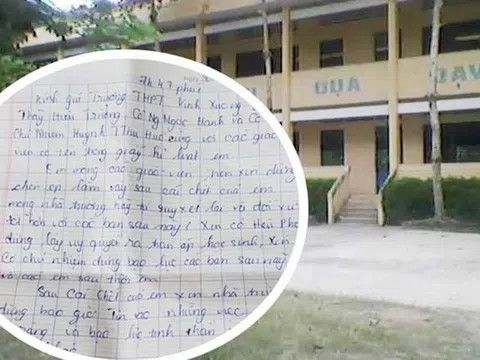 7h 47 phút
Kính gửi trường THPT Vĩnh Xương
Thầy Hiệu Trưởng Cô Ng Ngọc Hạnh và Cô
Chủ Nhiệm Huỳnh T Thu Huệ cùng với các giáo
viên có tên trong giấy kỉ luật em
Em mong các giáo viên nên xin đừng
chèn ép làm vậy sau cái chết của em
mong nhà trường hãy tự suy xét lại và đối xử
tốt hơn với các bạn sau này! Xin cô Hiệu Phó
đừng lấy uy quyền ra chèn ép học sinh, Xin
Cô chủ nhiệm đừng bạo lực các bạn sau này
và các em sau thời em
Sau cái chết của em xin nhà trường
đừng bao giờ Tin vào những
mạng và bạo lực tinh thần
DỤA
DẠY